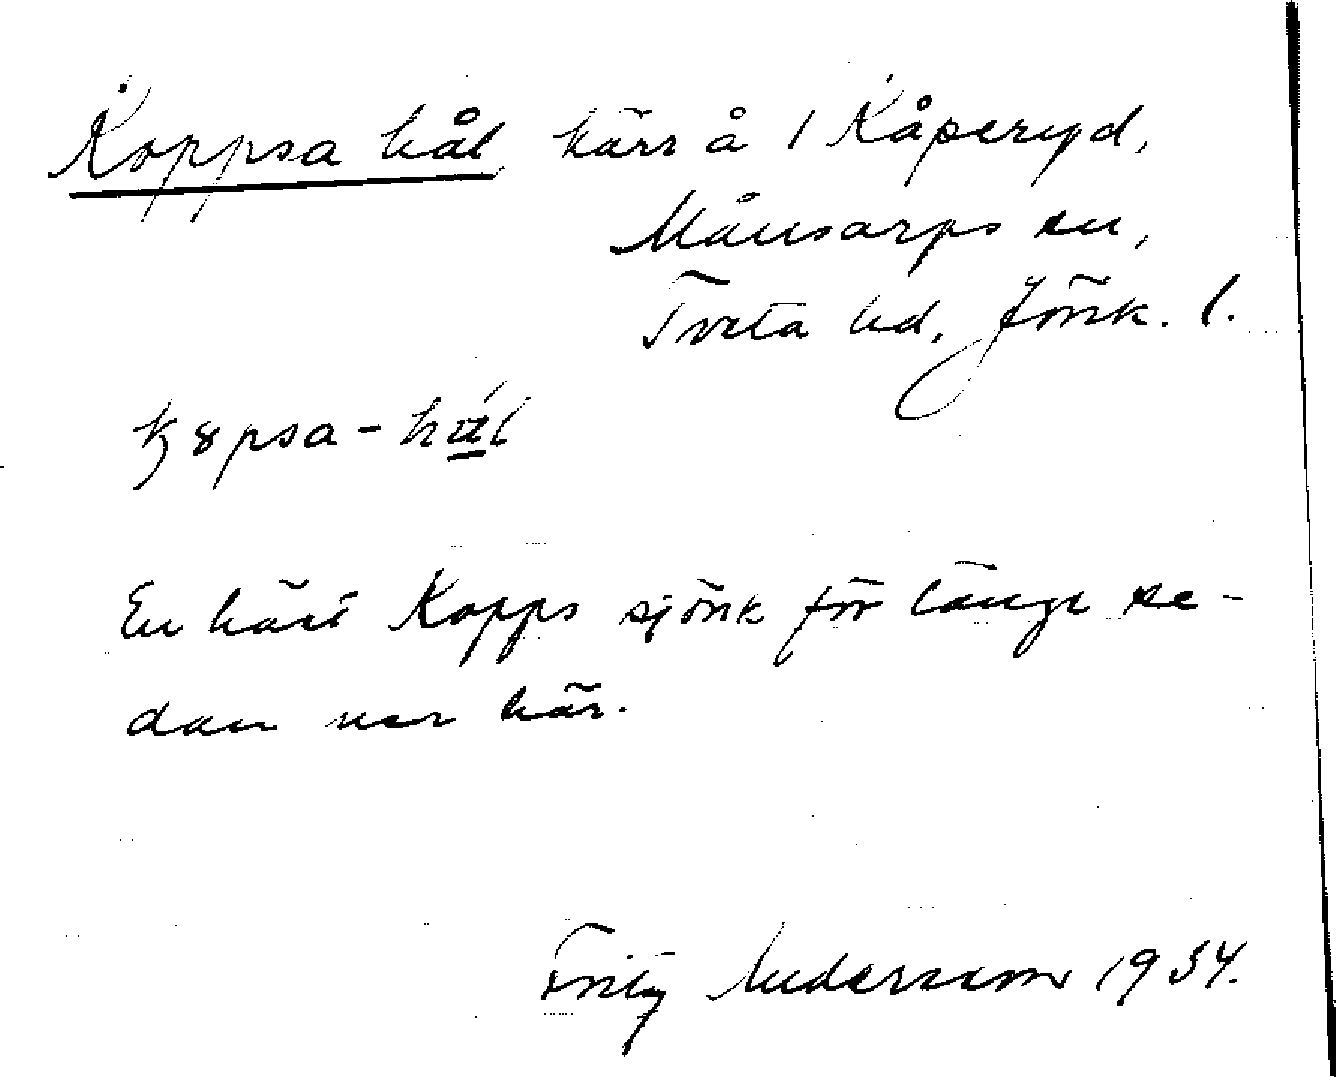 Koppsa hål, kärr å 1 Kåperyd,
Månsarps sn,
Tveta hd, Jönk. l.
En häst Kopps sjönk för länge se-
dan ner här.
Fritz Andersson 1934.